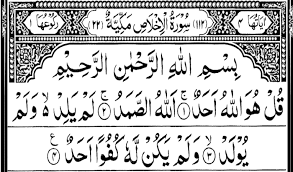 اٰيَاتُهَا ٤ (١١٢) سُوْرَةُ الْاِخْلَاصِ مَكِّيَّةٌ (٢٢) رُكُوْعُهَا ١
بِسْمِ اللهِ الرَّحْمٰنِ الرَّحِيْمِ
قُلْ هُوَ اللهُ اَحَدٌ ۚ ١ اَللهُ الصَّمَدُ ۚ ٢ لَمْ يَلِدْ ۙ وَلَمْ
يُوْلَدْ ۙ ٣ وَلَمْ يَكُنْ لَّهٗ كُفُوًا اَحَدٌ ࣖ ٤